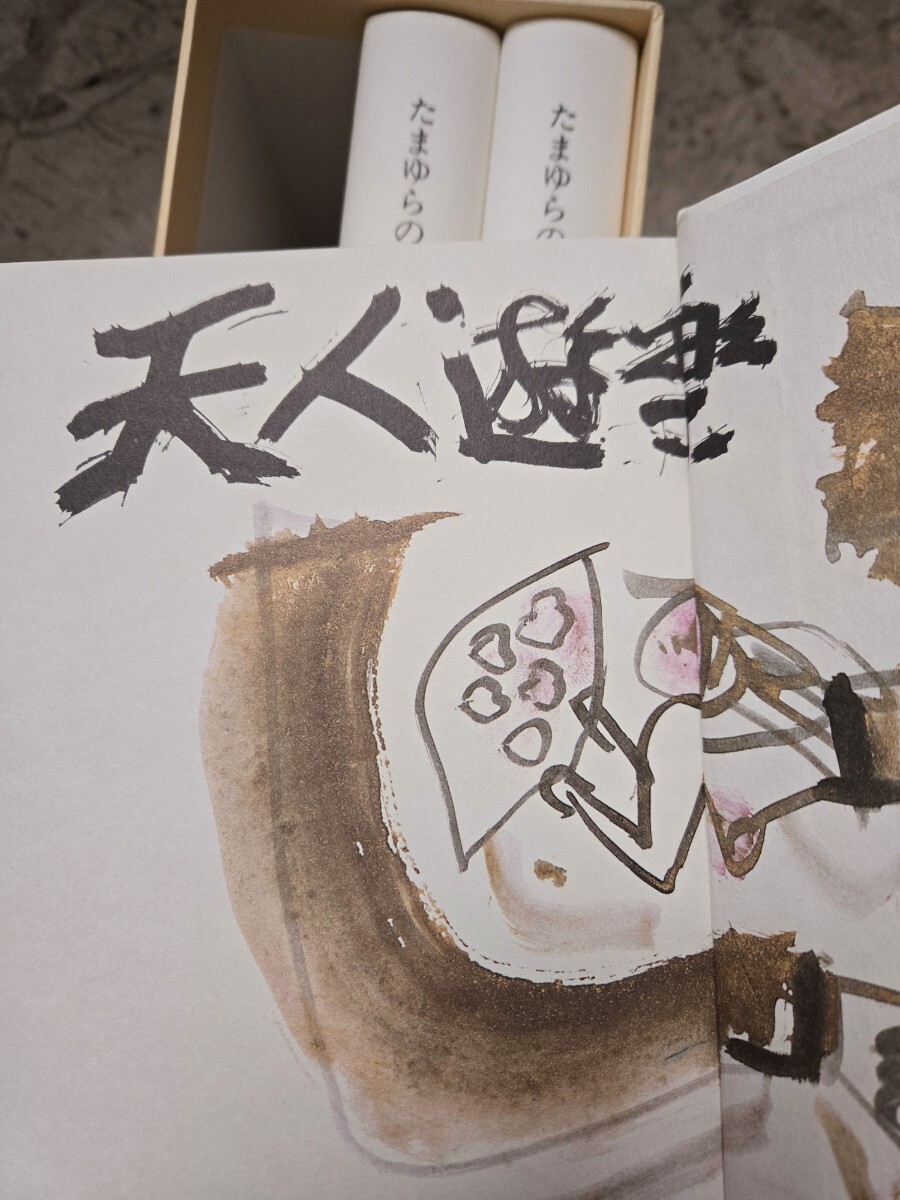 たまゆらの
たまゆらの
天人遊